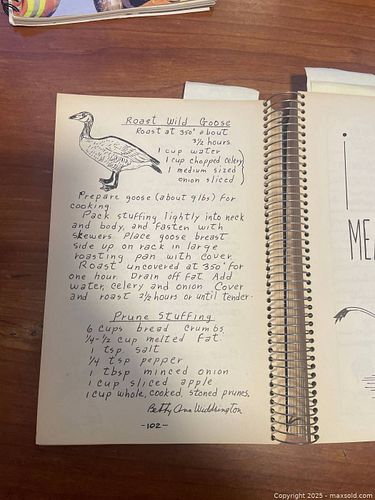 Roast Wild Goose
Roast at 350° about
3½ hours
1 cup water
1 cup chopped celery
1 medium sized
onion sliced
Prepare goose (about 9 lbs) for
cooking
Pack stuffing lightly into neck
and body, and fasten with
skewers. Place goose breast
side up on rack in large
roasting pan with cover.
Roast uncovered at 350° for
one hour. Drain off fat. Add
water, celery and onion. Cover
and roast 2½ hours or until tender.
Prune Stuffing
6 cups bread crumbs
¼-½ cup melted fat.
1 tsp. salt
¼ tsp pepper
1 tbsp minced onion
1 cup sliced apple
1 cup whole, cooked, stoned prunes.
Betty Ann Widdrington
-102-
MEA
© 2025 - maxsold.com